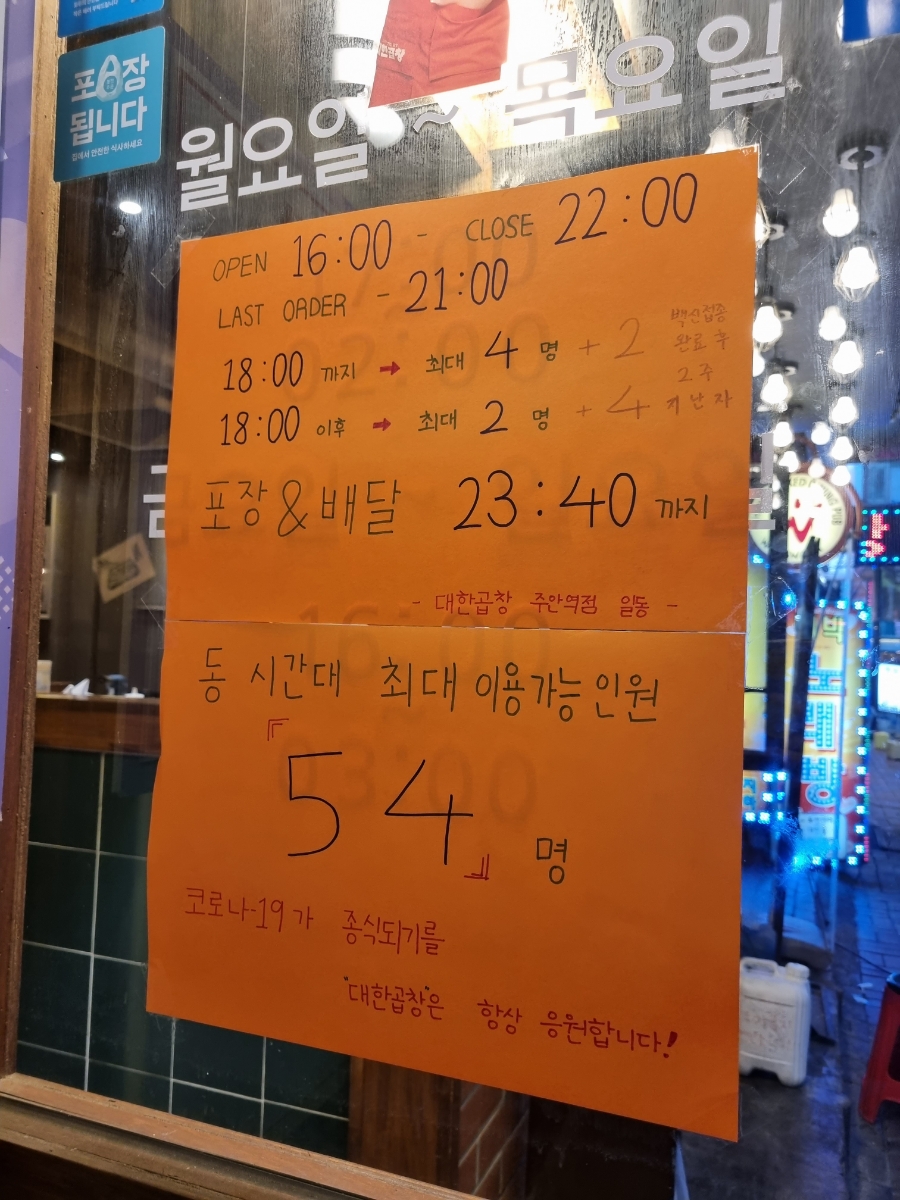 포장
됩니다
집에서 안전한 식사하세요
월요일 ~ 목요일
OPEN 16:00 - CLOSE 22:00
LAST ORDER - 21:00
18:00 까지 → 최대 4 명 + 2
18:00 이후 → 최대 2 명 + 4
백신접종
완료 후
2주
지난 자
포장 & 배달 23:40 까지
- 대한곱창 주안역점 일동 -
동 시간대 최대 이용가능인원
『54』 명
코로나-19가 종식되기를
"대한곱창"은 항상 응원합니다!